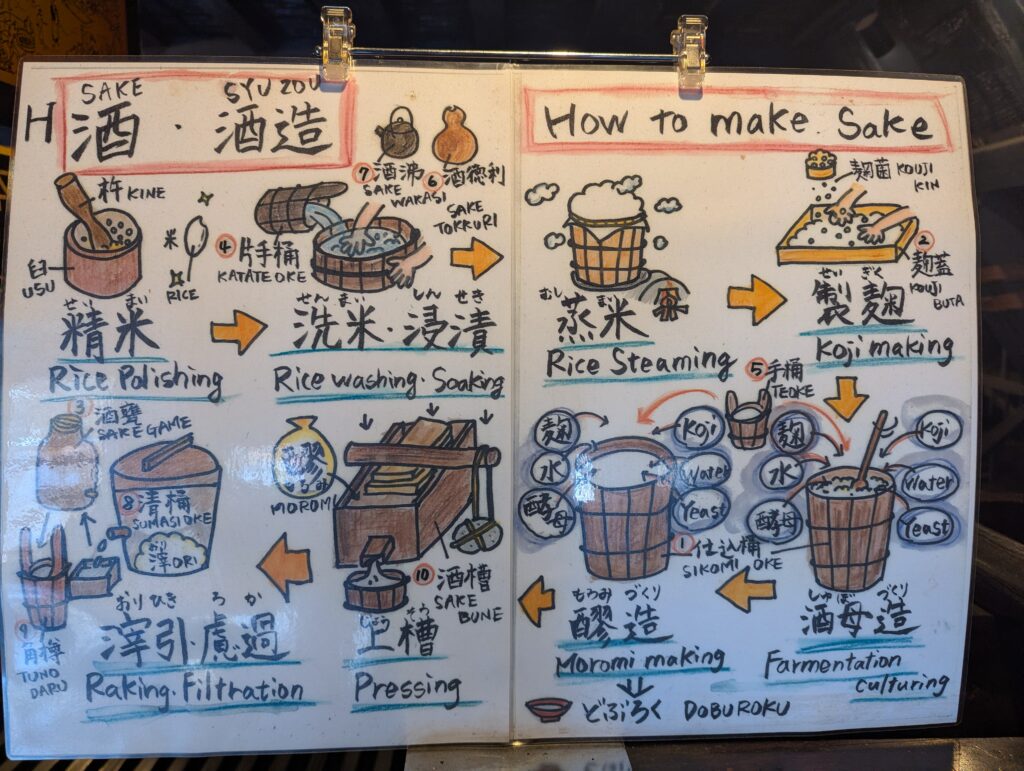 H
SAKE SYU ZOU
酒・酒造
⑦酒沸
SAKE
WAKASI
⑥酒徳利
SAKE
TOKKURI
杵 KINE
臼
USU
米
RICE
せい まい
精米
Rice Polishing
④片手桶
KATATE OKE
せん まい しん せき
洗米・浸漬
Rice washing・Soaking
③酒甕
SAKE GAME
8 清桶
SUMASI OKE
おり
滓 ORI
角樽
TUNO
DARU
おりひき ろ か
滓引・慮過
Raking・Filtration
もろみ
MOROMI
⑩酒槽
SAKE
BUNE
じょう そう
上槽
Pressing
How to make Sake
むし まい
蒸米
Rice Steaming
麹菌 KOUJI
KIN
②
麹蓋
KOUJI
BUTA
せい ぎく
製麹
Koji making
⑤手桶
TEOKE
麹
水
酵母
Koji
Water
Yeast
麹
水
酵母
Koji
Water
Yeast
①仕込桶
SIKOMI OKE
もろみ づくり
醪造
Moromi making
しゅぼ づくり
酒母造
Farmentation
culturing
どぶろく DOBUROKU